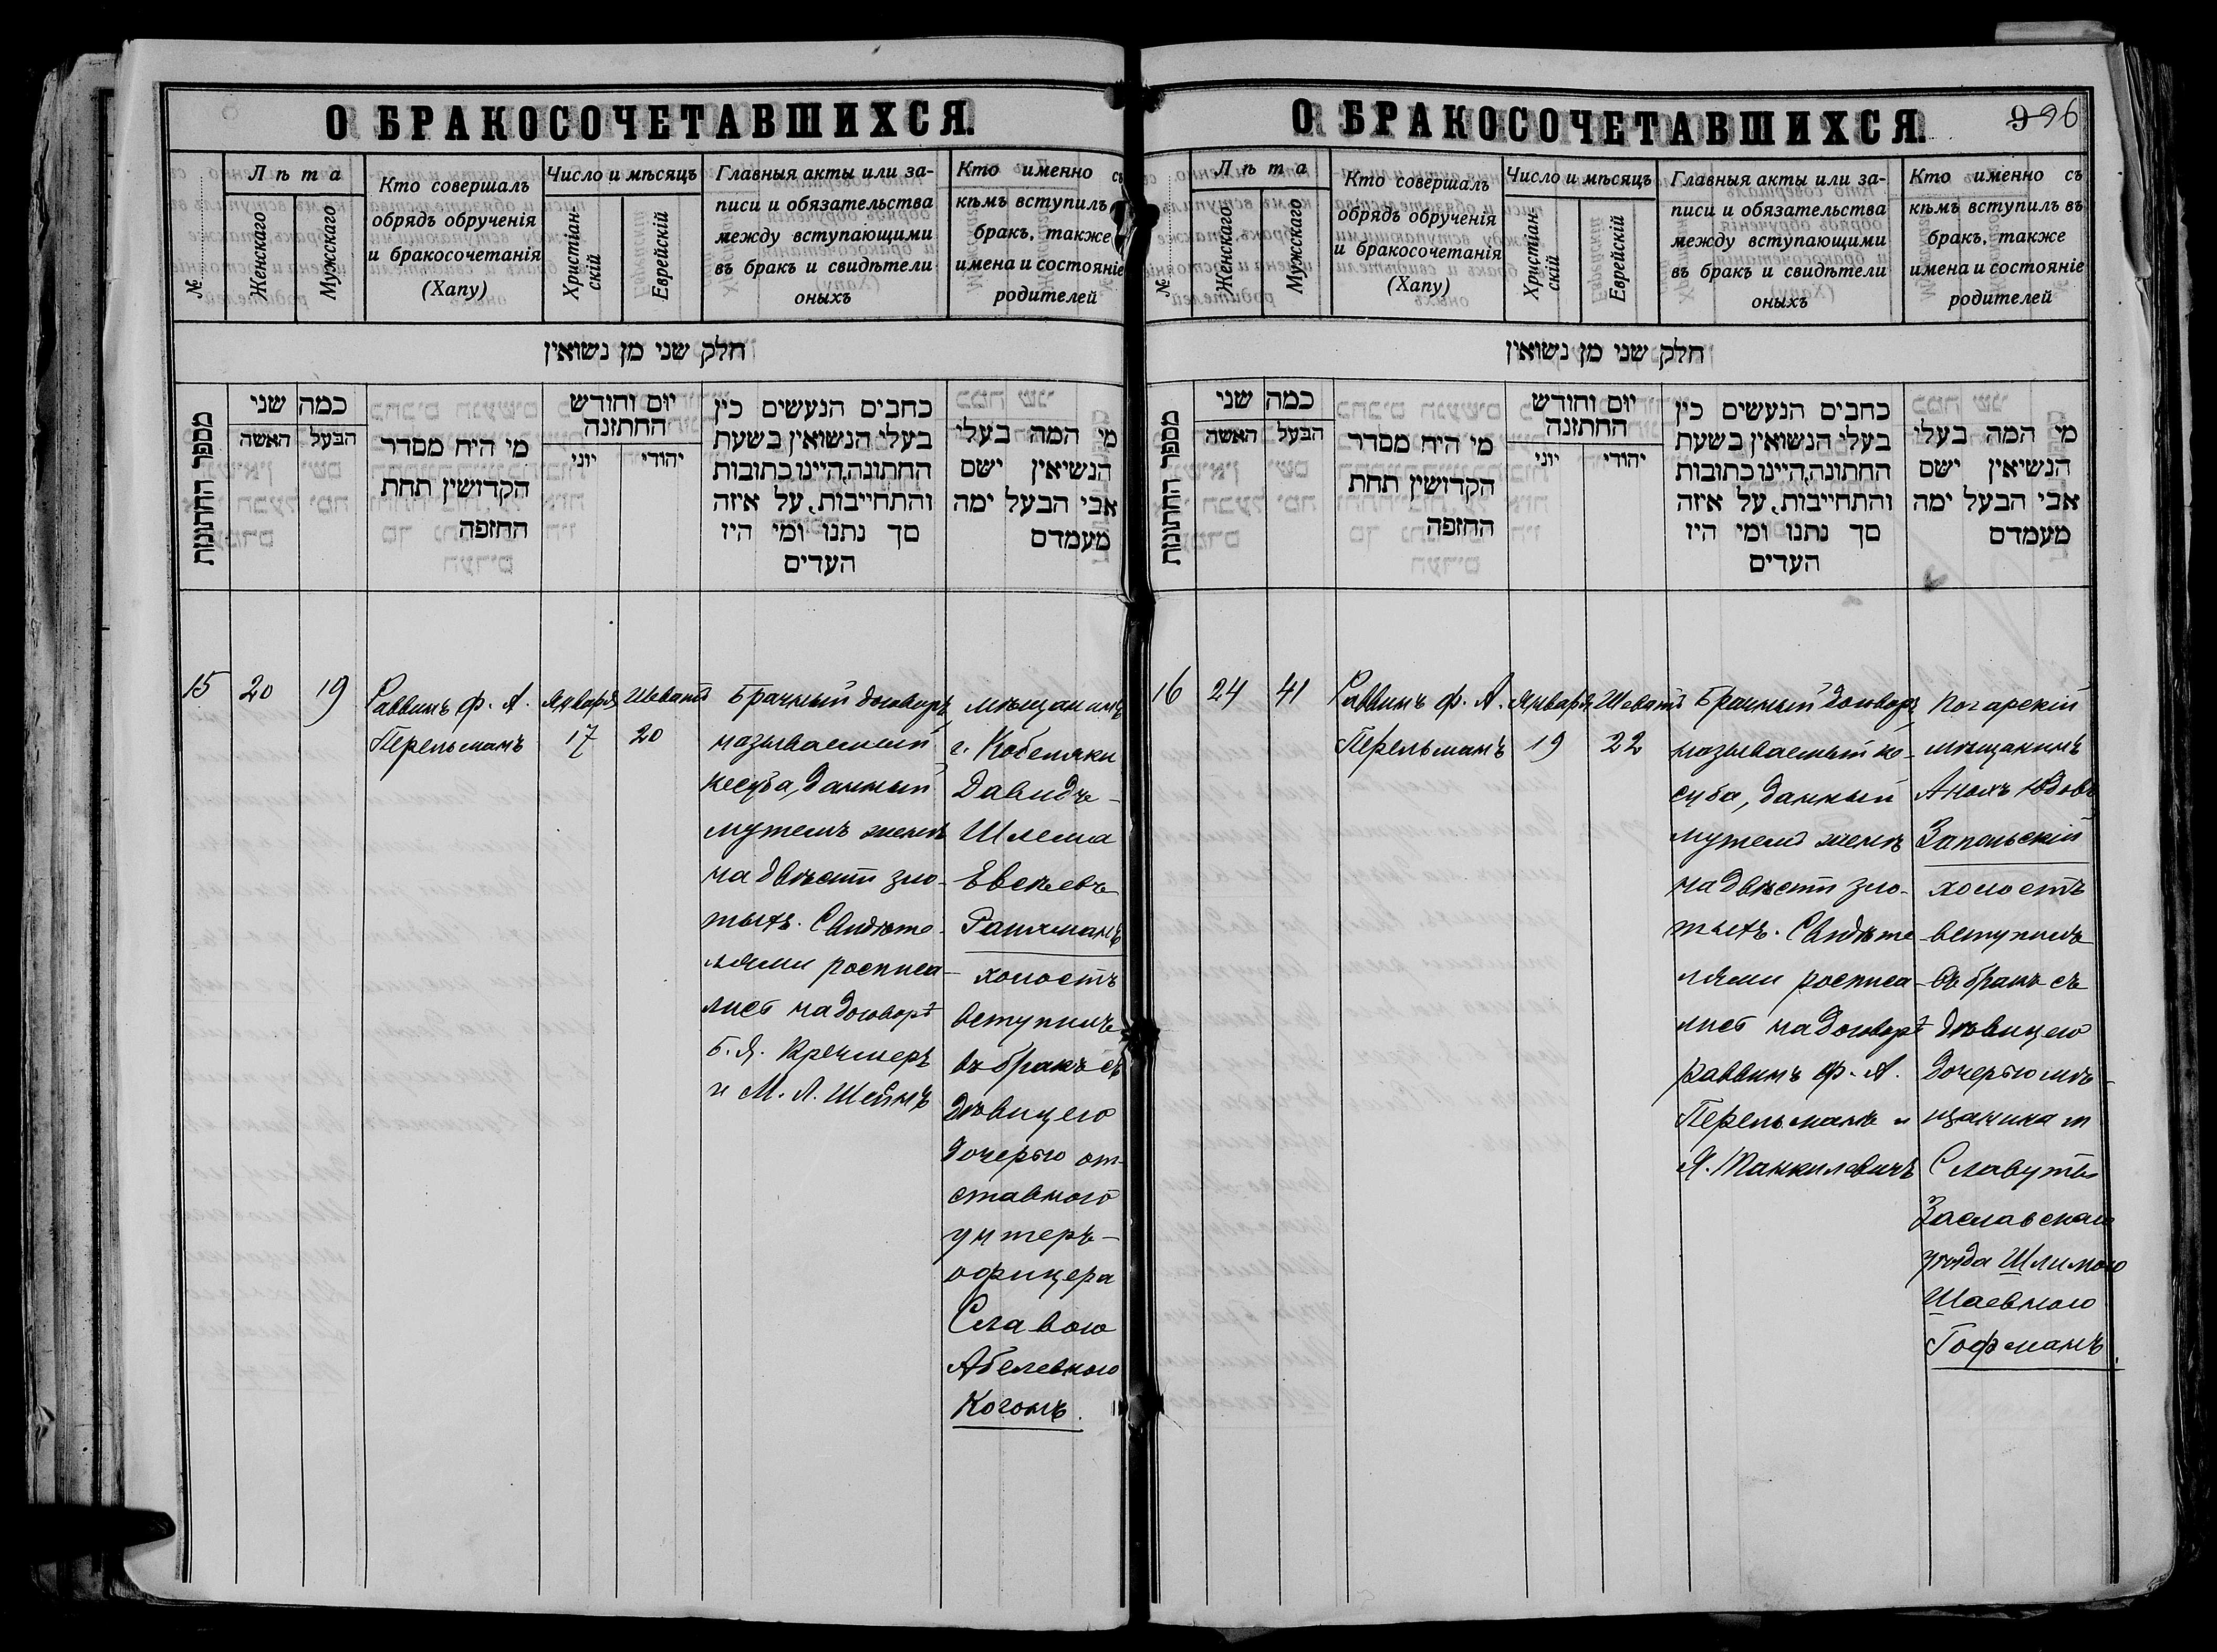 О БРАКОСОЧЕТАВШИХСЯ.
№
Лѣта
Женскаго
Мужскаго
Кто совершалъ
обрядъ обрученія
и бракосочетанія
(Хапу)
Число и мѣсяцъ
Христіан-
скій
Еврейскій
Главныя акты или за-
писи и обязательства
между вступающими
въ бракъ и свидѣтели
оныхъ
Кто именно съ
кѣмъ вступилъ
бракъ, также
имена и состояніе
родителей
חלק שני מן נשואין
מספר החתונות
כמה שני
האשה
הבעל
מי היח מסדר
הקדושין תחת
החזפה
יום וחודש
החתזנה
יוני
יהודי
כחבים הנעשים כין
בעלי הנשואין בשעת
החתונה,היינו כתובות
והתחייבות, על איזה
סך נתנו ומי היז
העדים
מי המה בעלי
הנשיאין ישם
אבי הבעל ימה
מעמדם
15
20
19
Раввинъ Ф. А.
Перельманъ
Января
17
Шеватъ
20
Брачный договоръ
называемый
кесуба, данный
мужемъ женѣ
на двѣсти зло-
тыхъ. Свидѣте-
лями росписа-
лись на договорѣ
Б. Я. Кремеръ
и М. Л. Шейнъ
мѣщанинъ
г. Кобеляки
Давидъ-
Шлема
Евсѣевъ
хопостъ
вступилъ
въ бракъ съ
дѣвицею
дочерью от-
ставного
унтеръ-
офицера
Славою
Абелевною
Когонъ.
О БРАКОСОЧЕТАВШИХСЯ.
996
№
Лѣта
Женскаго
Мужскаго
Кто совершалъ
обрядъ обрученія
и бракосочетанія
(Хапу)
Число и мѣсяцъ
Христіан-
скій
Еврейскій
Главныя акты или за-
писи и обязательства
между вступающими
въ бракъ и свидѣтели
оныхъ
Кто именно съ
кѣмъ вступилъ въ
бракъ, также
имена и состояніе
родителей
חלק שני מן נשואין
מספר החתונות
כמה שני
האשה
הבעל
מי היח מסדר
הקדושין תחת
החזפה
יום וחודש
החתזנה
יוני
יהודי
כחבים הנעשים כין
בעלי הנשואין בשעת
החתונה,היינו כתובות
והתחייבות, על איזה
סך נתנו ומי היז
העדים
מי המה בעלי
הנשיאין ישם
אבי הבעל ימה
מעמדם
16
24
41
Раввинъ Ф. А.
Перельманъ
Января
19
Шеватъ
22
Брачный договоръ
называемый ке-
суба, данный
мужемъ женѣ
на двѣсти зло-
тыхъ. Свидѣте-
лями росписа-
лись на договорѣ
Раввинъ Ф. А.
Перельманъ и
Я. Манкилевичъ
Погарскій
мѣщанинъ
Анохъ Юдовъ
Запольскій
холостъ
вступилъ
въ бракъ съ
дѣвицею
дочерью мѣ-
щанина м.
Славуты
Заславскаго
уѣзда Шлимою
Шаевною
Гофманъ.